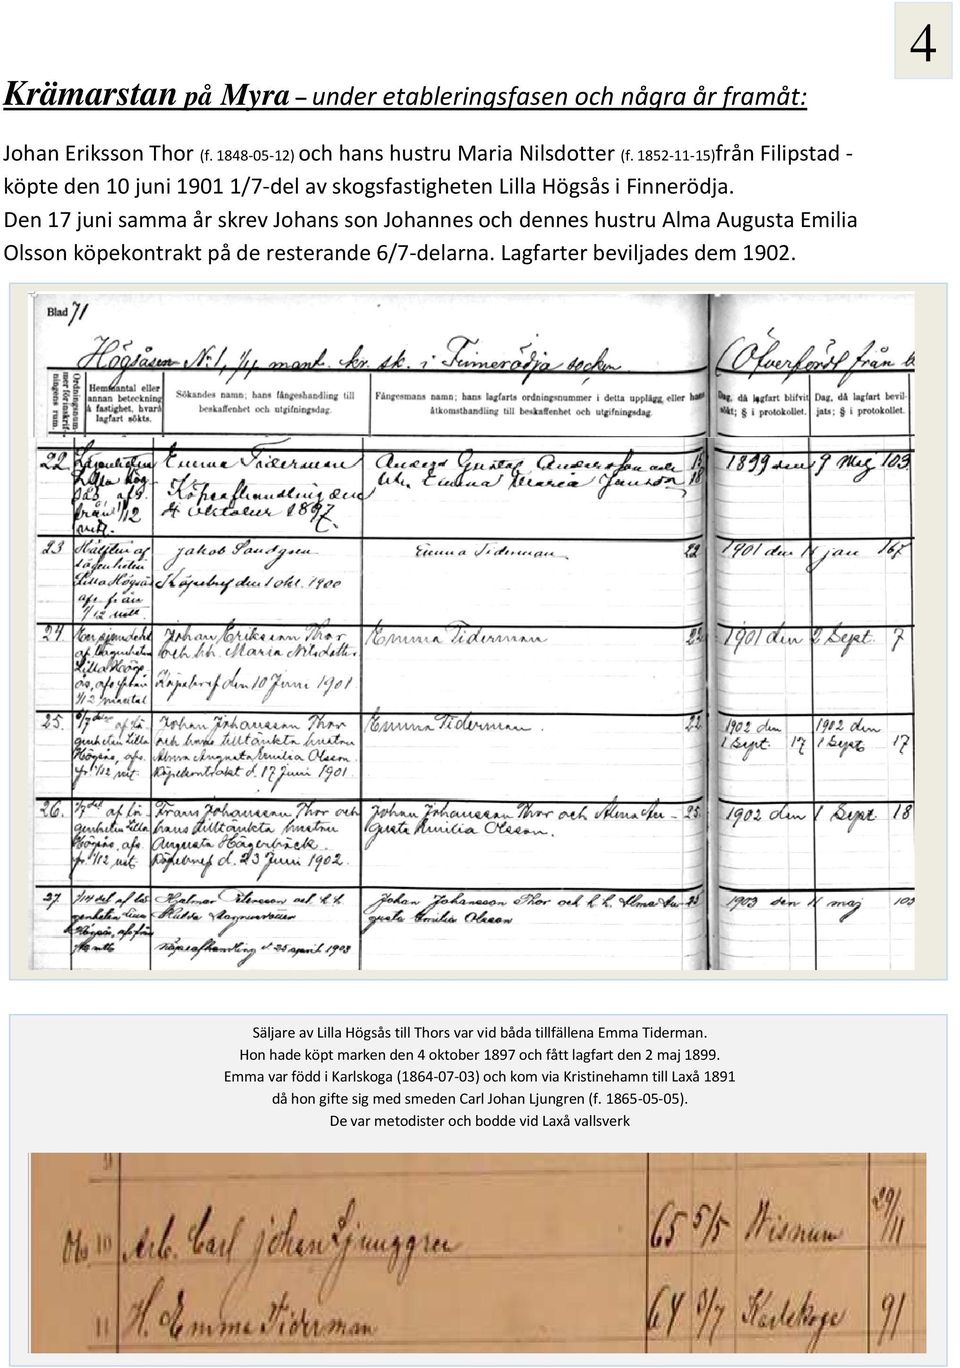 4
Krämarstan på Myra – under etableringsfasen och några år framåt:
Johan Eriksson Thor (f. 1848-05-12) och hans hustru Maria Nilsdotter (f. 1852-11-15)från Filipstad -
köpte den 10 juni 1901 1/7-del av skogsfastigheten Lilla Högsås i Finnerödja.
Den 17 juni samma år skrev Johans son Johannes och dennes hustru Alma Augusta Emilia
Olsson köpekontrakt på de resterande 6/7-delarna. Lagfarter beviljades dem 1902.
Blad 71
Högsåsen No 1, mant. kr. sk. i Finnerödja socken (Öfverfördt från
Ordningsnummer för inskrifningens rum.
Hemmantal eller annan beteckning å fastighet, hvarå lagfart sökts.
Sökandes namn; hans fångeshandling till beskaffenhet och utgifningsdag.
Fångesmans namn; hans lagfarts ordningsnummer i detta upplägg eller hans åtkomsthandling till beskaffenhet och utgifningsdag.
Dag, då lagfart blifvit sökt; § i protokollet.
Dag, då lagfart beviljats; § i protokollet.
22. Lägenheten Emma Tiderman Anders Gustaf Andersson och 15 1899 den 9 Maj 103
Lilla Hög- Köpeafhandling den Emma Maria Jansson 18
sås, afs. 4 oktober 1897.
från 1/12
mtl.
23 Hälften af Jakob Sandgren Emma Tiderman 22 1901 den 11 jan 167
lägenheten
Lilla Högsås Köpebref den 1 okt. 1900
afs. från
1/12 mtl.
24. En sjundedel Johan Eriksson Thor Emma Tiderman 22 1901 den 2 Sept. 7
af lägenheten och h.h. Maria Nilsdotter.
Lilla Högs-
ås, afs. från Köpebref den 10 Juni 1901.
1/12 mantal
25. 6/7 delar af lä- Johan Johansson Thor Emma Tiderman. 22 1902 den 1902 den
genheten Lilla och hans tilltänkta hustru 1 Sept. 17 1 Sept. 17
Högsås, afs. Alma Augusta Emilia Olsson.
fr. 1/12 mt. Köpekontrakt d. 17 juni 1901.
26. 1/7 del af lä- Frans Johansson Thor och Johan Johansson Thor och Alma Au- 25. 1902 den 1 Sept. 18
genheten Lilla hans tilltänkta hustru gusta Emilia Olsson.
Högsås, afs. Augusta Hägerbäck.
fr. 1/12 mt. Köpebref d. 23 Juni 1902.
27. 1/14 del af lä- Hjalmar Petersson och h. h. Johan Johansson Thor och h. h. Alma Au- 25 1903 den 11 maj 103
genheten Lilla Hulda gusta Emilia Olsson
Högsås, afs från
mtl Köpeafhandling d 25 april 1903
Säljare av Lilla Högsås till Thors var vid båda tillfällena Emma Tiderman.
Hon hade köpt marken den 4 oktober 1897 och fått lagfart den 2 maj 1899.
Emma var född i Karlskoga (1864-07-03) och kom via Kristinehamn till Laxå 1891
då hon gifte sig med smeden Carl Johan Ljungren (f. 1865-05-05).
De var metodister och bodde vid Laxå vallsverk
10 Arb. Carl Johan Ljunggren 65 5/5 Wisnum 29/11
11 H. Emma Tiderman 64 3/7 Karlskoga 91